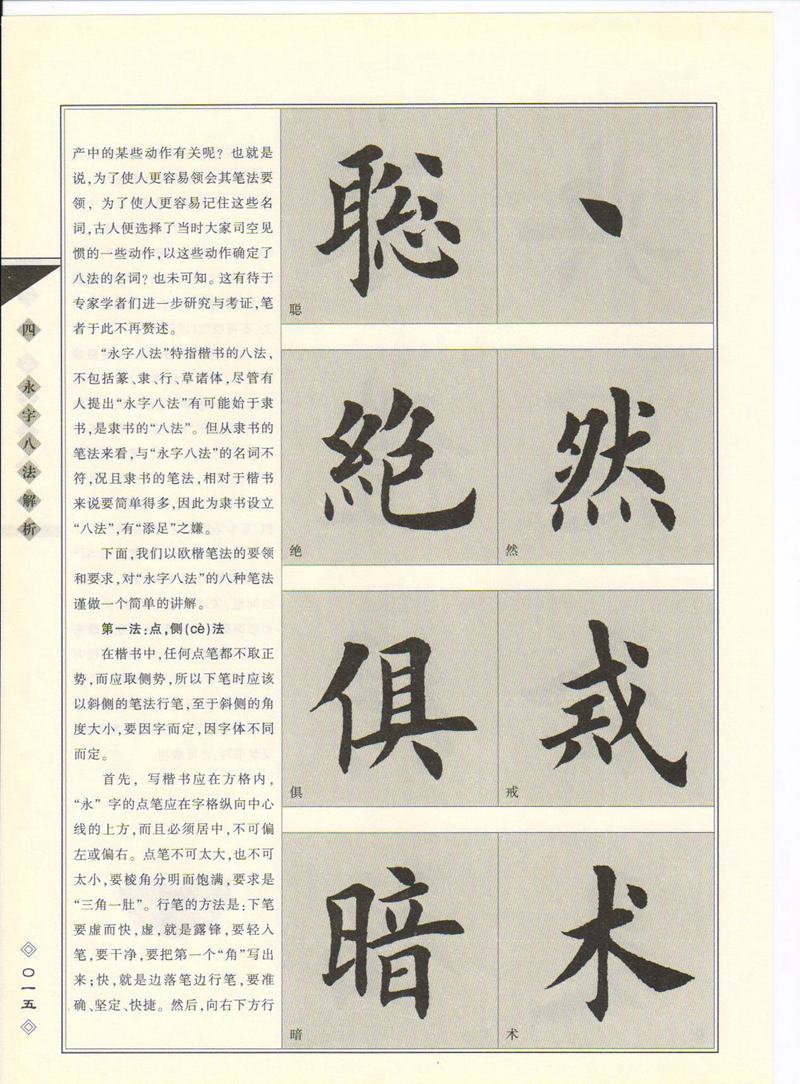 产中的某些动作有关呢？也就是
说，为了使人更容易领会其笔法要
领，为了使人更容易记住这些名
词，古人便选择了当时大家司空见
惯的一些动作，以这些动作确定了
八法的名词？也未可知。这有待于
专家学者们进一步研究与考证，笔
者于此不再赘述。
“永字八法”特指楷书的八法，
不包括篆、隶、行、草诸体，尽管有
人提出“永字八法”有可能始于隶
书，是隶书的“八法”。但从隶书的
笔法来看，与“永字八法”的名词不
符，况且隶书的笔法，相对于楷书
来说要简单得多，因此为隶书设立
“八法”，有“添足”之嫌。
下面，我们以欧楷笔法的要领
和要求，对“永字八法”的八种笔法
谨做一个简单的讲解。
第一法：点，侧(cè)法
在楷书中，任何点笔都不取正
势，而应取侧势，所以下笔时应该
以斜侧的笔法行笔，至于斜侧的角
度大小，要因字而定，因字体不同
而定。
首先，写楷书应在方格内，
“永”字的点笔应在字格纵向中心
线的上方，而且必须居中，不可偏
左或偏右。点笔不可太大，也不可
太小，要棱角分明而饱满，要求是
“三角一肚”。行笔的方法是：下笔
要虚而快，虚，就是露锋，要轻入
笔，要干净，要把第一个“角”写出
来；快，就是边落笔边行笔，要准
确、坚定、快捷。然后，向右下方行
聪
聪
丶
絶
绝
然
然
俱
俱
戒
戒
暗
暗
术
术
四
永字八法解析
〇一五